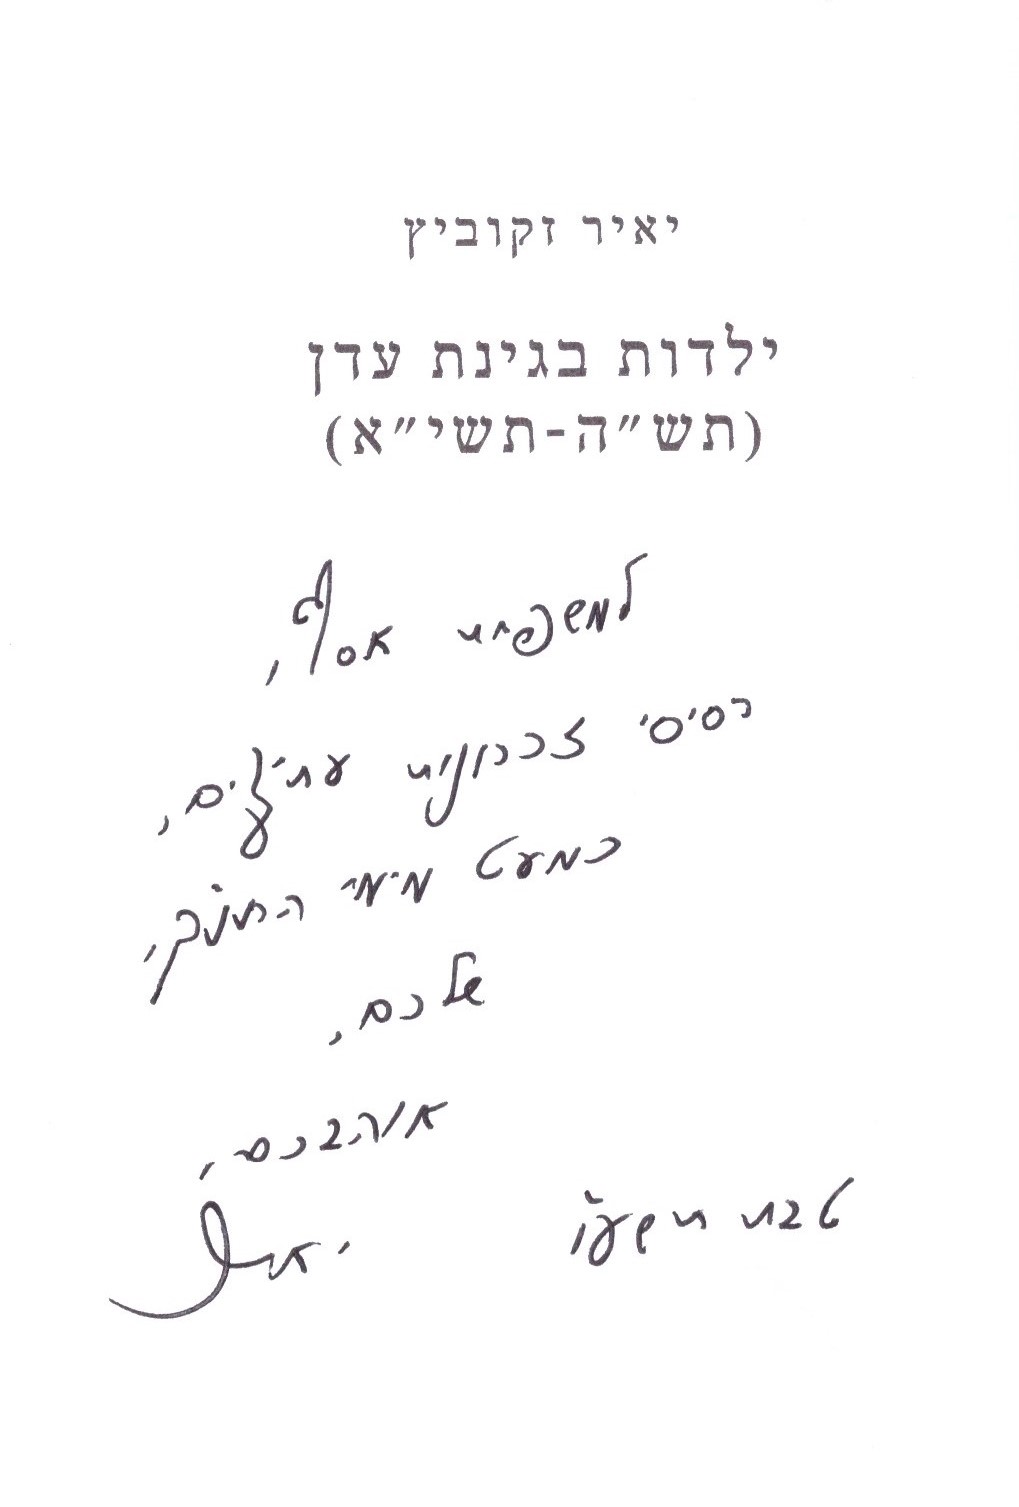 יאיר זקוביץ
ילדות בגינת עדן
(תש"ה-תשי"א)
למשפחת אסף,
רסיסי זכרונות עתיקים,
כמעט מימי התנ"ך,
שלכם,
אוהבכם,
טבת תשע"ו
יאיר